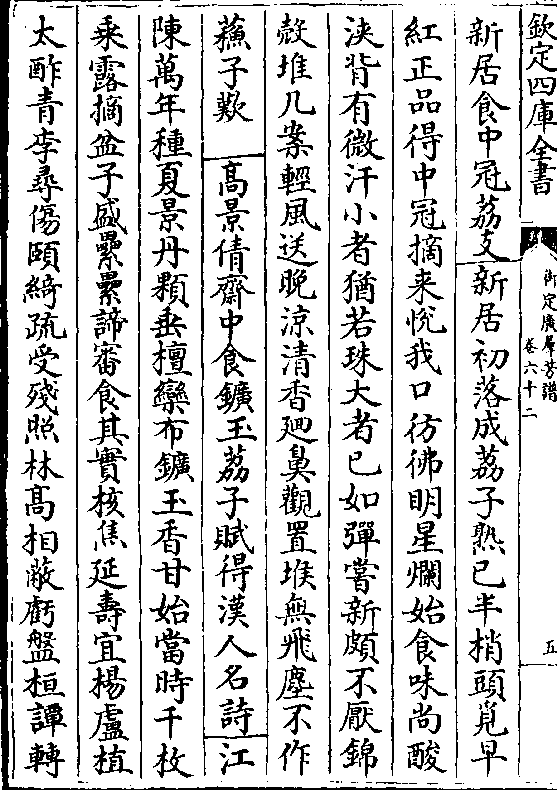 欽定四庫全書
御定廣羣芳譜
卷六十二
五
新居食中冠荔支 新居初落成荔子熟已半梢頭覓早
紅正品得中冠摘来悦我口彷彿明星爛始食味尚酸
浹背有微汗小者猶若珠大者已如彈嘗新頗不厭錦
殻堆几案輕風送晚涼清香迴鼻觀置堆無飛塵不作
蘓子歎
髙景倩齋中食鑛玉荔子賦得漢人名詩 江
陳萬年種夏景丹顆垂檀欒布鑛玉香甘始當時千枚
乘露摘盆子盛纍纍諦審食其實核焦延壽宜楊盧植
太酢青李尋傷頤綺疏受殘照林髙相蔽虧盤桓譚轉